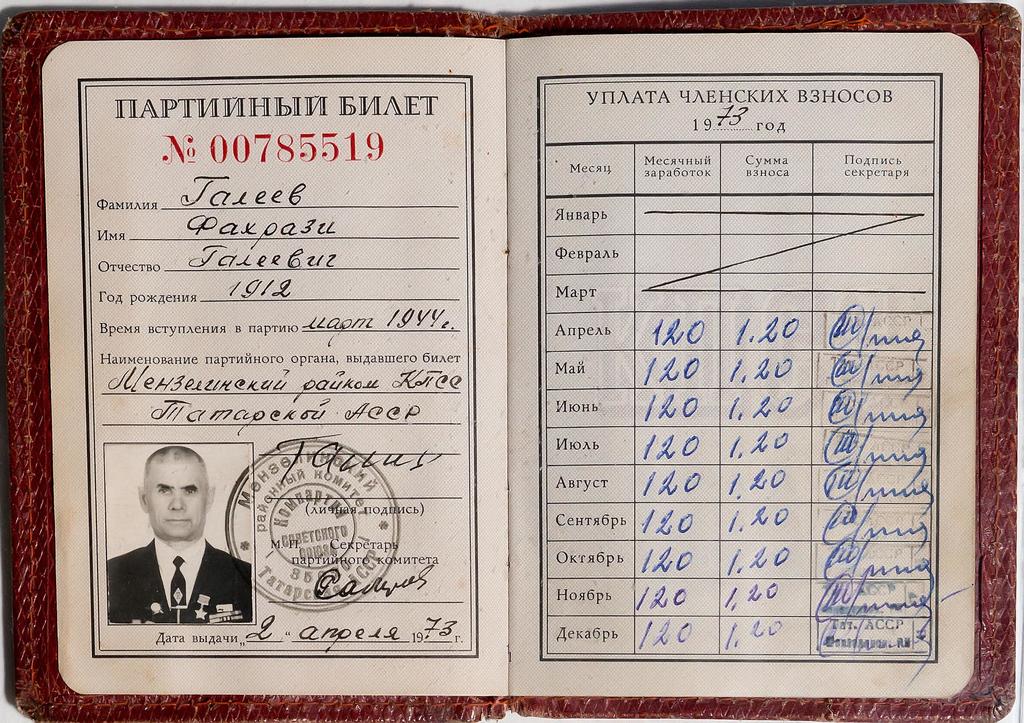 ПАРТИЙНЫЙ БИЛЕТ
№ 00785519
Фамилия Галеев
Имя Фахрази
Отчество Галеевич
Год рождения 1912
Время вступления в партию март 1944 г.
Наименование партийного органа, выдавшего билет
Мензелинский райком КПСС
Татарской АССР
(личная подпись)
М. П. Секретарь
партийного комитета
Мензелинский
районный комитет
Компартия
Советского
Союза
Татарской АССР
Дата выдачи „2“ апреля 1973 г.
УПЛАТА ЧЛЕНСКИХ ВЗНОСОВ
1973 год
Месяц Месячный заработок Сумма взноса Подпись секретаря
Январь
Февраль
Март
Апрель 120 1.20
Май 120 1.20
Июнь 120 1.20
Июль 120 1.20
Август 120 1.20
Сентябрь 120 1.20
Октябрь 120 1.20
Ноябрь 120 1.20
Декабрь 120 1.20 Тат. АССР